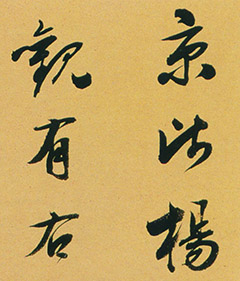 京此楊
觀有右